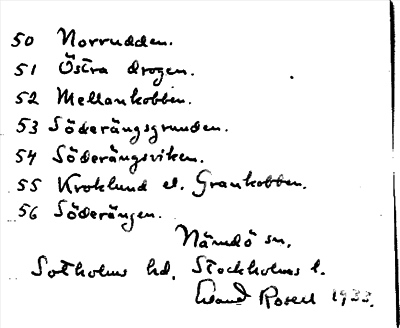 50 Norrudden.
51 Östra drogen.
52 Mellankobben.
53 Söderängsgrunden.
54 Söderängsviken.
55 Kroklund el. Grankobben.
56 Söderängen.
Nämdö sn,
Sotholms hd, Stockholms l.
Rosell 1933.